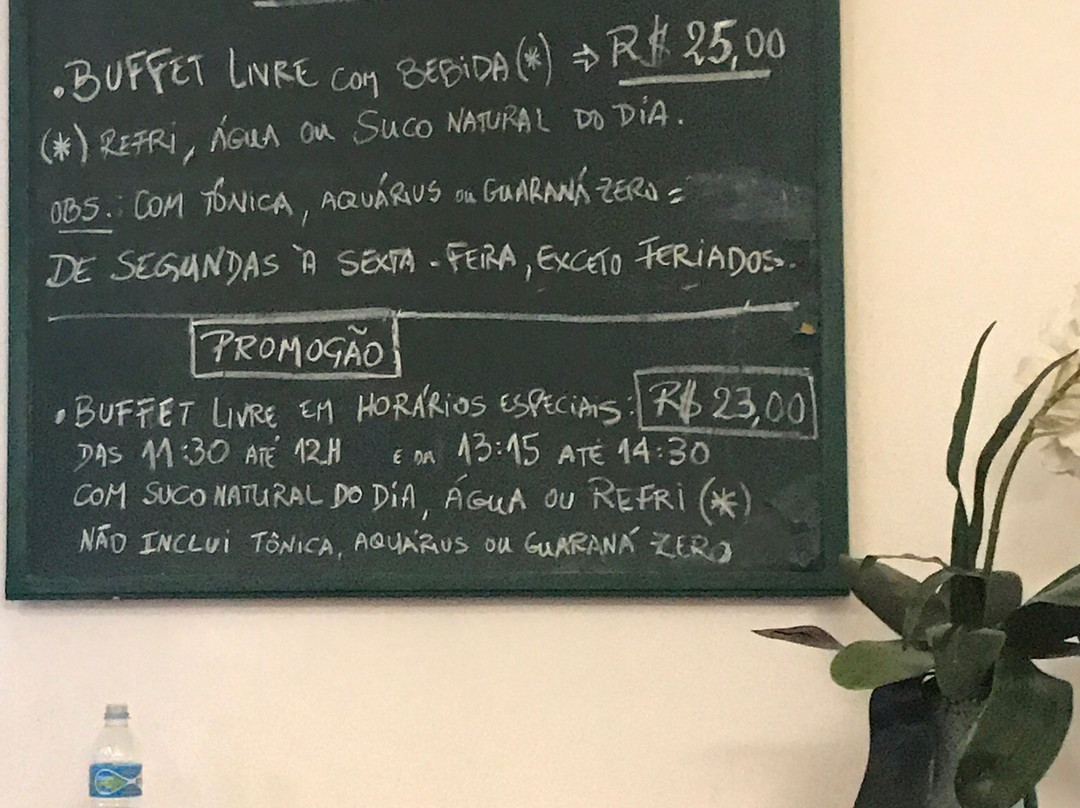 . BUFFET LIVRE COM BEBIDA (*) ⇒ R$ 25,00
(*) REFRI, ÁGUA OU SUCO NATURAL DO DIA.
OBS.: COM TÔNICA, AQUÁRIUS OU GUARANÁ ZERO =
DE SEGUNDAS À SEXTA-FEIRA, EXCETO FERIADOS.
PROMOÇÃO
. BUFFET LIVRE EM HORÁRIOS ESPECIAIS: R$ 23,00
DAS 11:30 ATÉ 12H E DA 13:15 ATÉ 14:30
COM SUCO NATURAL DO DIA, ÁGUA OU REFRI (*)
NÃO INCLUI TÔNICA, AQUÁRIUS OU GUARANÁ ZERO